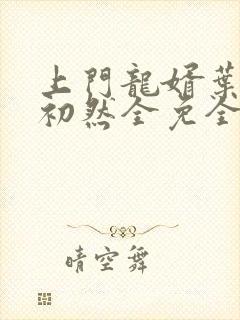 上門龍婿葉
初然全免全
晴空舞